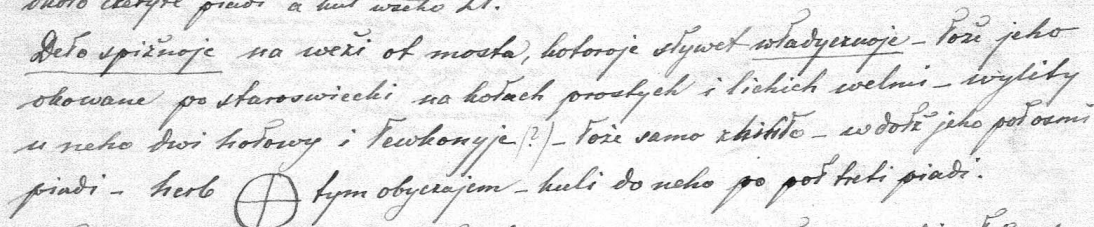 około cztyre piadi a kul wseho 21.
Deło spiżnoje na weżi ot mosta, kotoroje sływet władycznoje – łoże jeho
okowane po staroswiecki na kołach prostych i lichich welmi – wylity
u neho dwi hołowy i łewkonyje (?) – łoże samo zhihło – wdołż jeho poł osmi
piadi – herb tym obyczajem – kuli do neho po poł treti piadi.